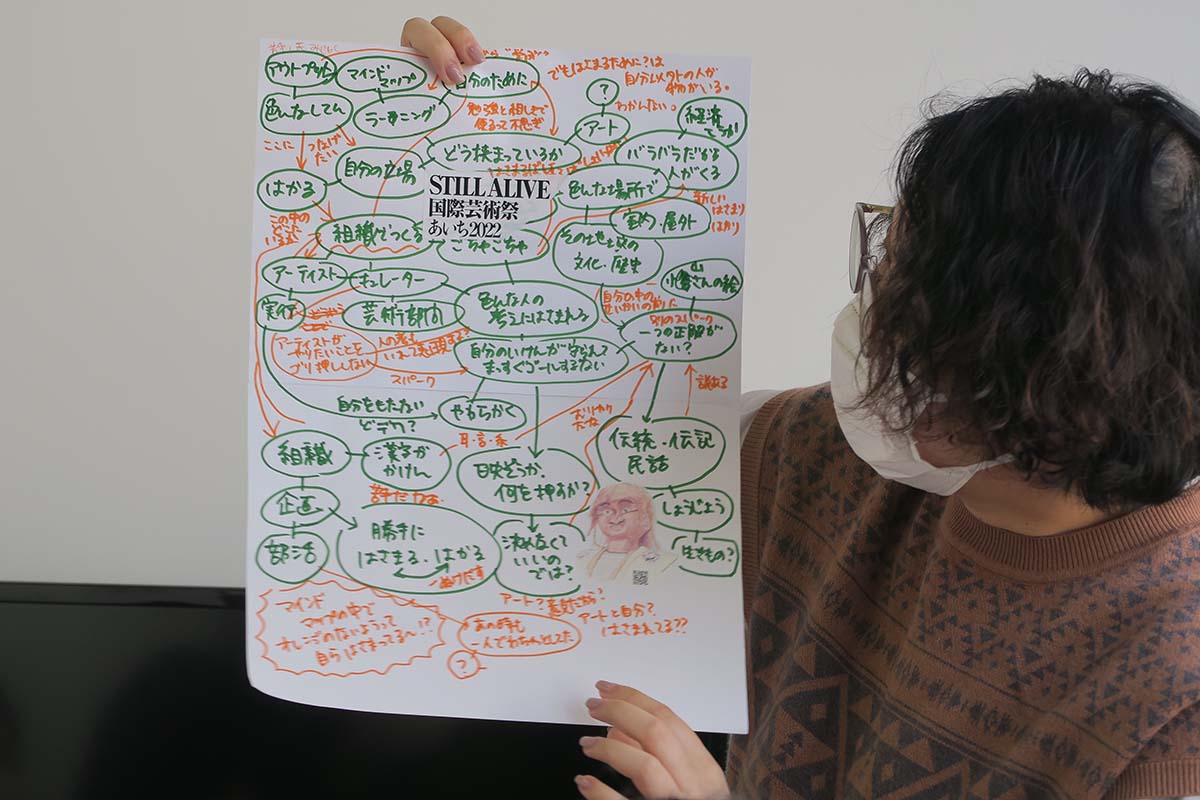 アウトプット
マインド
マップ
自分のために
でもはさまるために?は
自分以外の人が
物がいる。
?
わかんない。
色んなしてん
ラーニング
勉強と組しきで
使うって不思ぎ
アート
経済
ここに
つなげ
たい
どう挟まっているか
バラバラだから
人がくる
自分の立場
はかる
STILL ALIVE
国際芸術祭
あいち2022
色んな場所で
新しい
はさまり
はかり
この中の
どこに
いるか
組織でつくる
ごちゃごちゃ
室内・屋外
その地域の
文化・歴史
アーティスト
キュレーター
山
小さんの絵
実行
芸術部門
色んな人の
考えにはさまれる
自分の中の
別のスパーク
一つの正解が
ない?
アーティストが
やりたいことを
ゴリ押ししない
人の考えも
スパーク
自分のいけんが守られて
まっすぐゴールするない
自分をもたない
どデク?
やわらかく
耳・言・糸
伝統・伝記
民話
組織
漢字が
かけん
映ぞうか、
何を押すか?
企画
勝手に
はさまる・はかる
決めなくて
いいの
では?
しょうじょう
部活
ぬけだす
生きもの?
マインド
マップの中で
オレンジのないようって
自らはさまってる〜!?
アート?
アートと自分?
はさまれてる??
あの時も
?